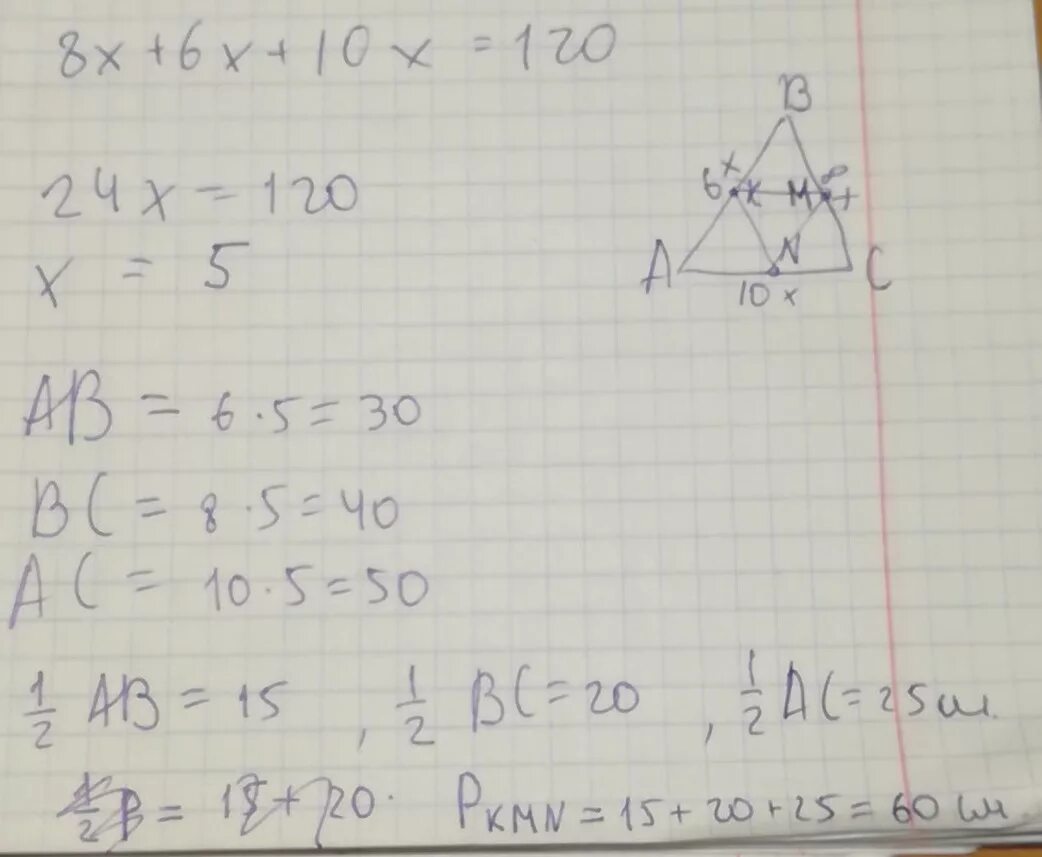 8x + 6x + 10x = 120
B
x
6 K M 8 x
24x = 120
x = 5
A N C
10x
AB = 6 · 5 = 30
BC = 8 · 5 = 40
AC = 10 · 5 = 50
1/2 AB = 15 , 1/2 BC = 20 , 1/2 AC = 25 см.
P KMN = 15 + 20 + 25 = 60 см